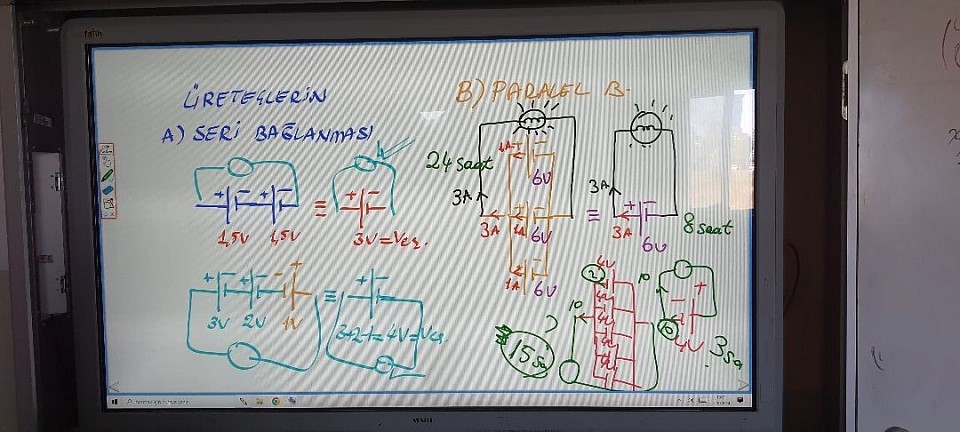 ÜRETEÇLERİN
A) SERİ BAĞLANMASI
+ - + -
1,5V 1,5V
≡
+ -
3V=Veş.
+ - + - - +
3V 2V 1V
≡
+ -
3+2-1=4V=Veş.
B) PARALEL B.
24 saat
1A
6V
3A
3A 1A 6V
1A 6V
≡
3A
+ -
3A
6V
8 saat
4V
2
10
15 sa
10
- +
10
4V
3 sa